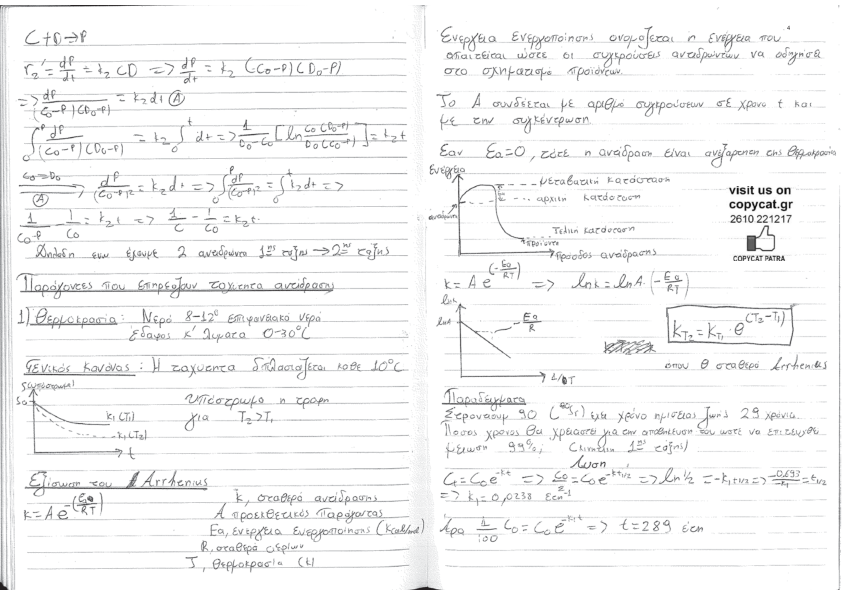 C+D→P
r₂' = dP/dt = k₂ CD => dP/dt = k₂ (C₀-P)(D₀-P)
=> dP/(C₀-P)(D₀-P) = k₂dt Ⓐ
∫₀ᴾ dP/(C₀-P)(D₀-P) = k₂ ∫₀ᵗ dt => 1/(D₀-C₀) [ln C₀(D₀-P)/D₀(C₀-P)] = k₂t
C₀=D₀ Ⓐ => dP/(C₀-P)² = k₂dt => ∫₀ᴾ dP/(C₀-P)² = ∫₀ᵗ k₂dt =>
1/(C₀-P) - 1/C₀ = k₂t => 1/C - 1/C₀ = k₂t
Δηλαδή εαν έχουμε 2 αντιδρώντα 1ης τάξης → 2ης τάξης
Παράγοντες που επηρεάζουν ταχύτητα αντίδρασης
1) Θερμοκρασία: Νερό 8-12° επιφανειακό νερό
έδαφος κ' λύματα 0-30°C
Γενικός Κανόνας: Η ταχύτητα διπλασιάζεται κάθε 10°C
S(υπόστρωμα)
S₀
k₁(T₁)
k₂(T₂)
t
υπόστρωμα η τροφή
για T₂>T₁
Εξίσωση του Arrhenius
k = A e^-(Ea/RT)
k, σταθερά αντίδρασης
A προεκθετικός παράγοντας
Ea, ενέργεια ενεργοποίησης (kcal/mol)
R, σταθερά αερίων
T, θερμοκρασία (k)
Ενέργεια Ενεργοποίησης ονομάζεται η ενέργεια που
απαιτείται ώστε οι συγκρούσεις αντιδρώντων να οδηγήσει
στο σχηματισμό προϊόντων.
Το A συνδέεται με αριθμό συγκρούσεων σε χρόνο t και
με την συγκέντρωση
Εάν Ea=0, τότε η αντίδραση είναι ανεξάρτητη της θερμοκρασίας
Ενέργεια
μεταβατική κατάσταση
αρχική κατάσταση
Τελική κατάσταση
προϊόντα
Πρόοδος αντίδρασης
visit us on
copycat.gr
2610 221217
COPYCAT PATRA
k = A e^(-Ea/RT) => lnk = lnA · (-Ea/RT)
lnk
lnA
-Ea/R
k_T₂ = k_T₁ · θ^(T₂-T₁)
όπου θ σταθερά Arrhenius
Παραδείγματα
Στροντιουμ 90 (⁹⁰Sr) έχει χρόνο ημίσειας ζωής 29 χρόνια.
Πόσος χρόνος θα χρειαστεί για την αποθήκευση του ώστε να επιτευχθεί
μείωση 99%; (κινητική 1ης τάξης)
Λύση
C = C₀e^-kt => C₀/2 = C₀e^-kt₁/₂ => ln½ = -k₁t₁/₂ => -0,693/-k₁ = t₁/₂
=> k₁ = 0,0238 έτη⁻¹
Άρα 1/100 C₀ = C₀e^-k₁t => t = 289 έτη